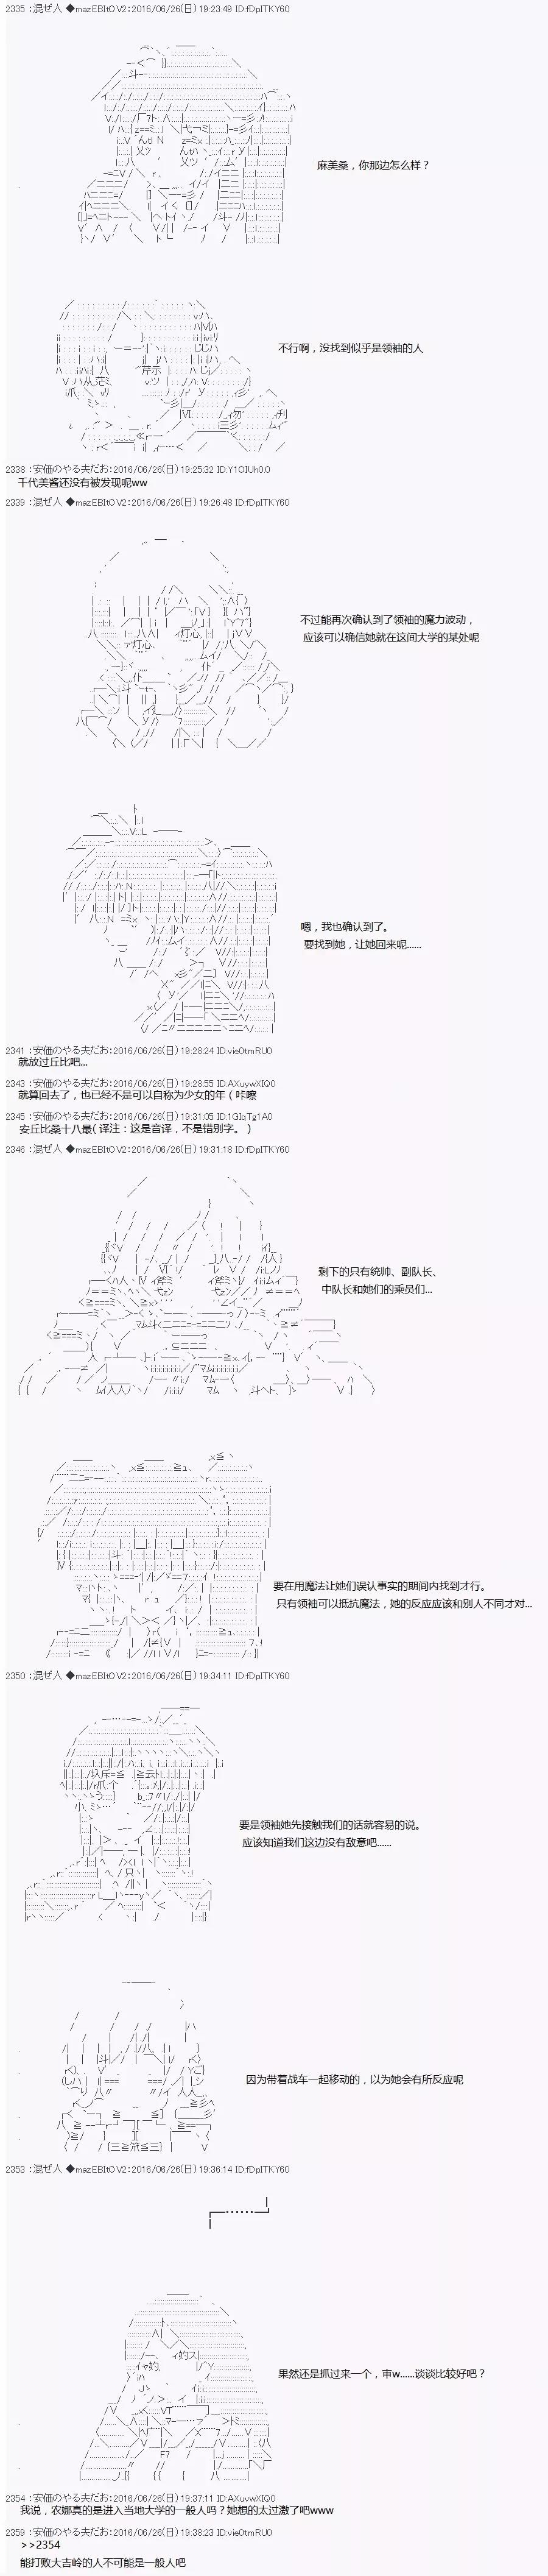 2335 ：混ぜ人 ◆mazEBItOV2：2016/06/26(日) 19:23:49 ID:fDpITKY60
麻美桑，你那边怎么样？
不行啊，没找到似乎是领袖的人
2338 ：安価のやる夫だお：2016/06/26(日) 19:25:32 ID:Y1OIUh0.0
千代美酱还没有被发现呢ww
2339 ：混ぜ人 ◆mazEBItOV2：2016/06/26(日) 19:26:48 ID:fDpITKY60
不过能再次确认到了领袖的魔力波动，
应该可以确信她就在这间大学的某处呢
嗯，我也确认到了。
要找到她，让她回来呢……
2341 ：安価のやる夫だお：2016/06/26(日) 19:28:24 ID:vie0tmRU0
就放过丘比吧...
2343 ：安価のやる夫だお：2016/06/26(日) 19:28:55 ID:AXuywXIQ0
就算回去了，也已经不是可以自称为少女的年（咔嚓
2345 ：安価のやる夫だお：2016/06/26(日) 19:31:05 ID:1GIqTg1A0
安丘比桑十八最（译注：这是音译，不是错别字。）
2346 ：混ぜ人 ◆mazEBItOV2：2016/06/26(日) 19:31:18 ID:fDpITKY60
剩下的只有统帅、副队长、
中队长和她们的乘员们...
要在用魔法让她们误认事实的期间内找到才行。
只有领袖可以抵抗魔法，她的反应应该和别人不同才对...
2350 ：混ぜ人 ◆mazEBItOV2：2016/06/26(日) 19:34:11 ID:fDpITKY60
要是领袖她先接触我们的话就容易的说。
应该知道我们这边没有敌意吧……
因为带着战车一起移动的，以为她会有所反应呢
2353 ：混ぜ人 ◆mazEBItOV2：2016/06/26(日) 19:36:14 ID:fDpITKY60
果然还是抓过来一个，审w……谈谈比较好吧？
2354 ：安価のやる夫だお：2016/06/26(日) 19:37:11 ID:AXuywXIQ0
我说，农娜真的是进入当地大学的一般人吗？她想的太过激了吧www
2359 ：安価のやる夫だお：2016/06/26(日) 19:38:23 ID:vie0tmRU0
>>2354
能打败大吉岭的人不可能是一般人吧